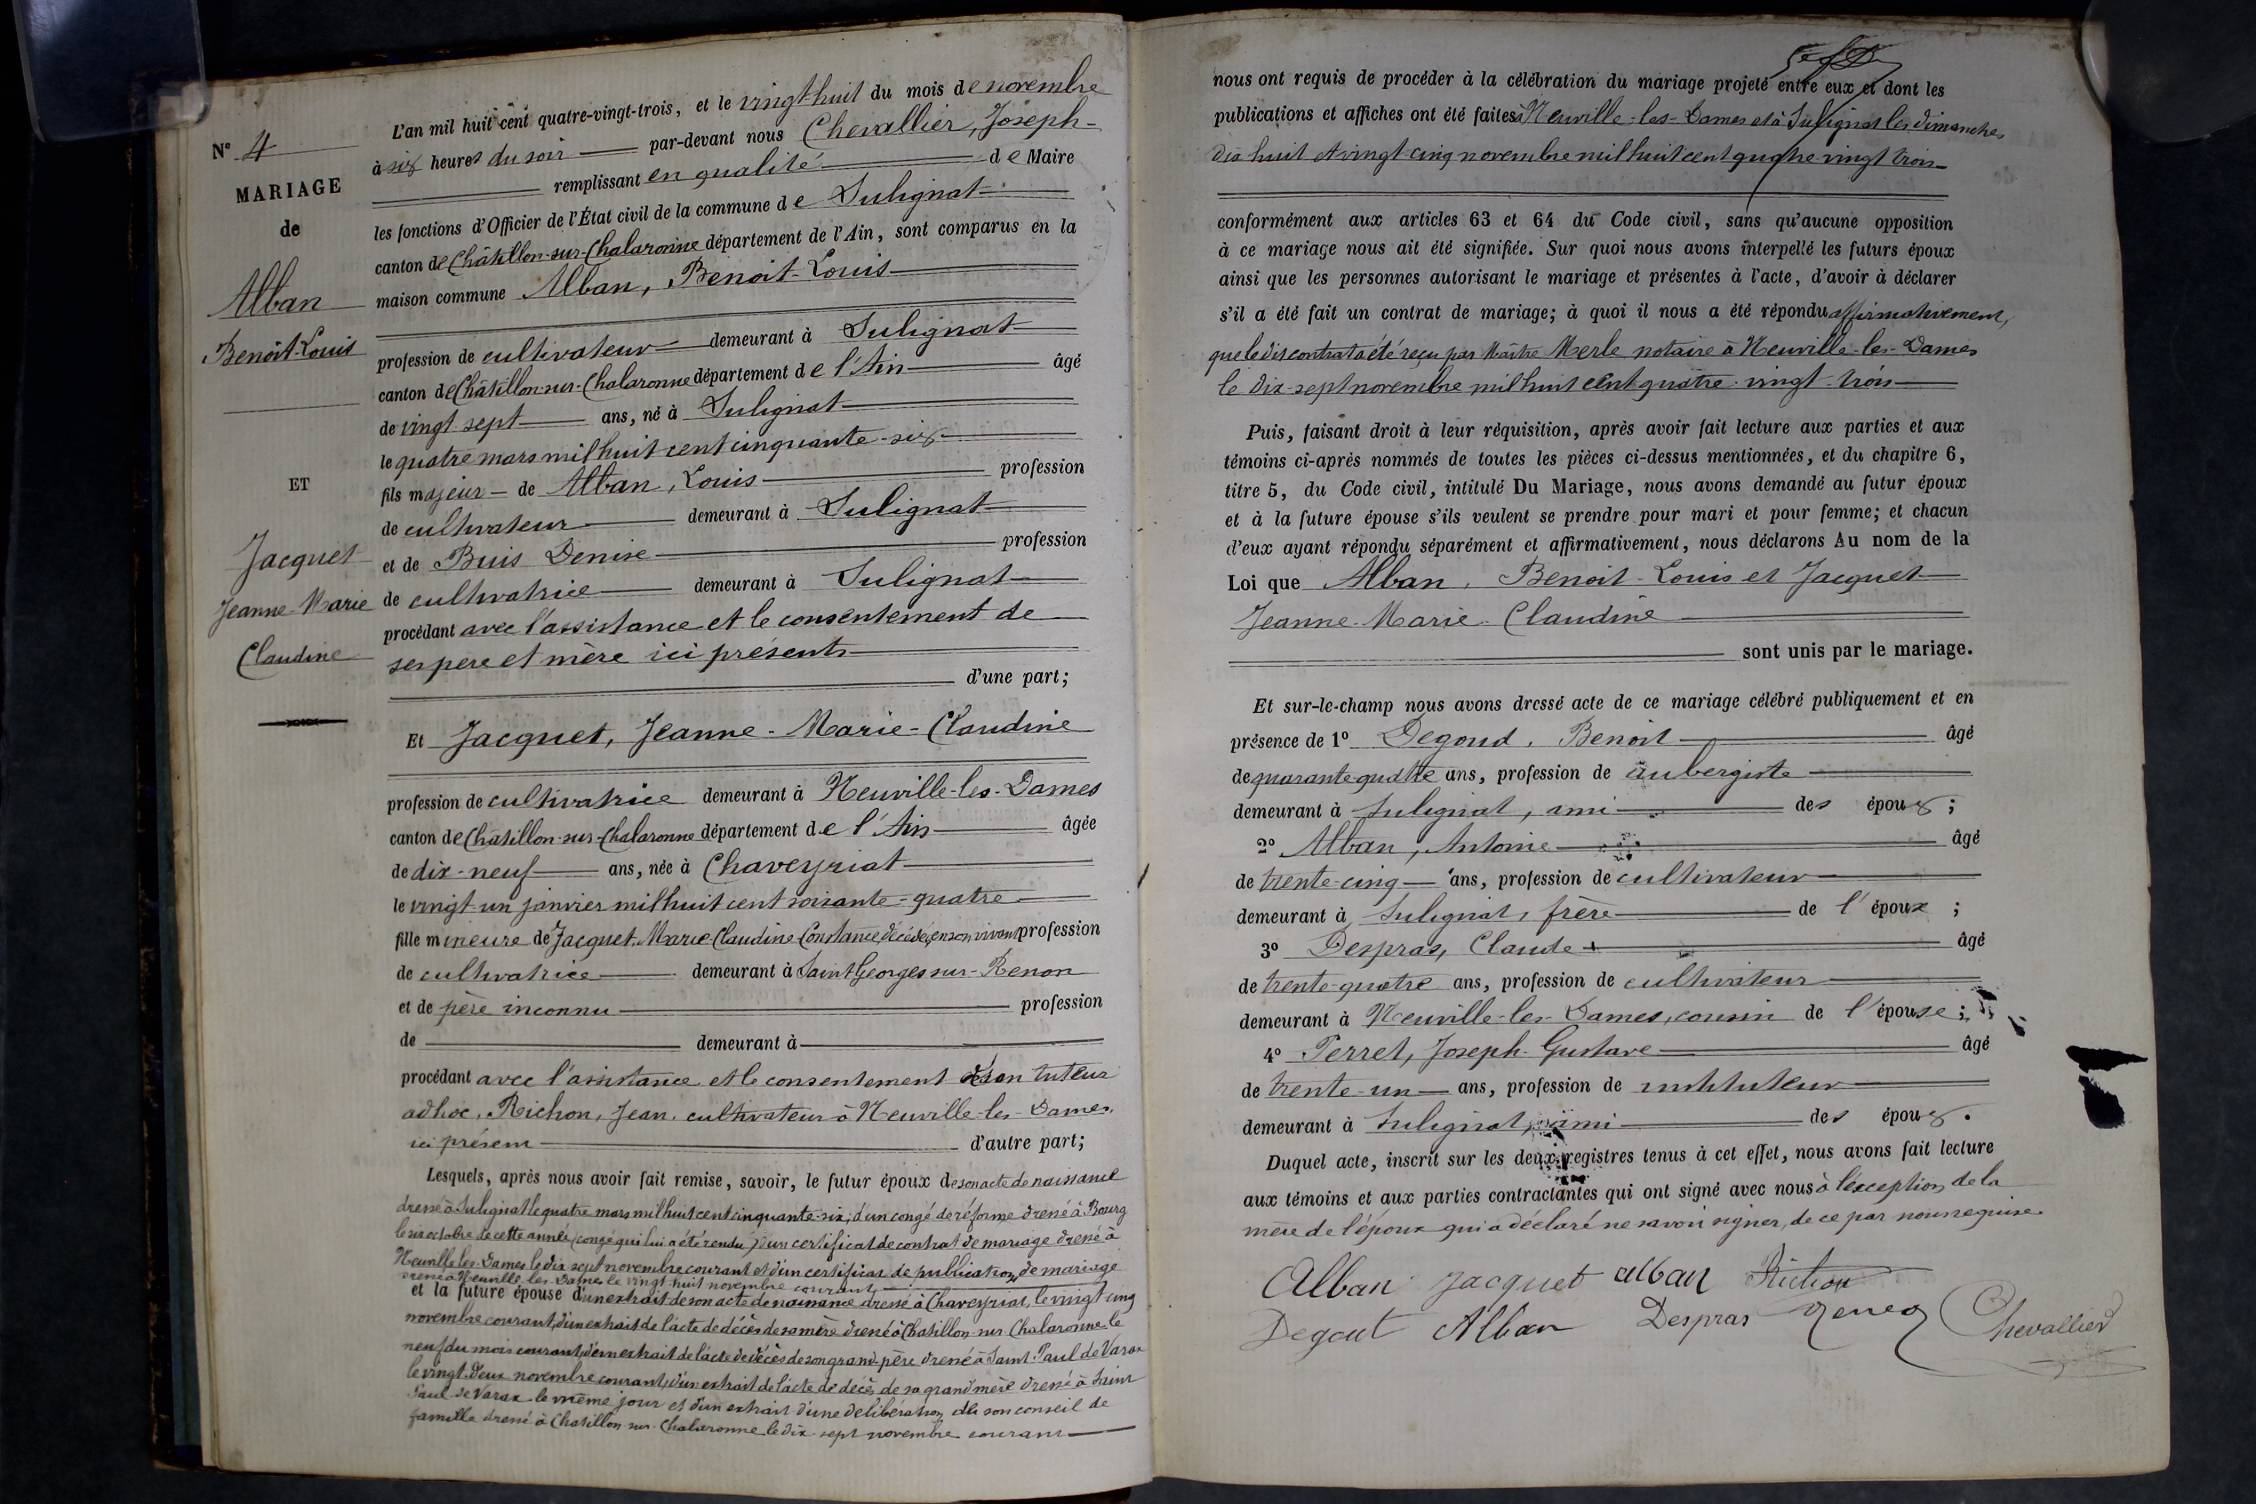 N° 4
MARIAGE
de
Alban
Benoît-Louis
ET
Jacquet
Jeanne-Marie
Claudine
L'an mil huit cent quatre-vingt-trois, et le vingt-huit du mois de novembre
à six heures du soir par-devant nous Chevallier, Joseph-
remplissant en qualité de Maire
les fonctions d'Officier de l'État civil de la commune de Sulignat
canton de Châtillon-sur-Chalaronne département de l'Ain, sont comparus en la
maison commune Alban, Benoit-Louis
profession de cultivateur demeurant à Sulignat
canton de Châtillon-sur-Chalaronne département de l'Ain âgé
de vingt-sept ans, né à Sulignat
le quatre mars mil huit cent cinquante-six
fils majeur de Alban, Louis profession
de cultivateur demeurant à Sulignat
et de Buis Denise profession
de cultivatrice demeurant à Sulignat
procédant avec l'assistance et le consentement de
ses pere et mère ici présents
d'une part;
Et Jacquet, Jeanne-Marie-Claudine
profession de cultivatrice demeurant à Neuville-les-Dames
canton de Chatillon-sur-Chalaronne département de l'Ain âgée
de dix-neuf ans, née à Chaveyriat
le vingt-un janvier mil huit cent soixante-quatre
fille mineure de Jacquet, Marie-Claudine-Constance, décédée, en son vivant profession
de cultivatrice demeurant à Saint Georges sur-Renon
et de père inconnu profession
de demeurant à
procédant avec l'assistance et le consentement de son tuteur
adhoc, Richon, Jean, cultivateur à Neuville-les-Dames,
ici présent d'autre part;
Lesquels, après nous avoir fait remise, savoir, le futur époux de son acte de naissance
dressé à Sulignat le quatre mars mil huit cent cinquante-six, d'un congé de réforme dressé à Bourg
le six octobre de cette année (congé qui lui a été rendu) d'un certificat de contrat de mariage dressé à
Neuville-les-Dames le dix sept novembre courant et d'un certificat de publication de mariage
dressé à Neuville-les-Dames le vingt-huit novembre courant
et la future épouse d'un extrait de son acte de naissance dressé à Chaveyriat, le vingt cinq
novembre courant, d'un extrait de l'acte de décès de sa mère dressé à Chatillon-sur-Chalaronne le
neuf du mois courant, d'un extrait de l'acte de décès de son grand-père dressé à Saint-Paul de Varax
le vingt-deux novembre courant, d'un extrait de l'acte de décès de sa grand'mère dressé à Saint
Paul-de Varax le même jour et d'un extrait d'une délibération de son conseil de
famille dressé à Chatillon sur Chalaronne le dix-sept novembre courant
nous ont requis de procéder à la célébration du mariage projeté entre eux et dont les
publications et affiches ont été faites à Neuville-les-Dames et à Sulignat les dimanches
dix-huit et vingt-cinq novembre mil huit cent quatre-vingt trois
conformément aux articles 63 et 64 du Code civil, sans qu'aucune opposition
à ce mariage nous ait été signifiée. Sur quoi nous avons interpellé les futurs époux
ainsi que les personnes autorisant le mariage et présentes à l'acte, d'avoir à déclarer
s'il a été fait un contrat de mariage; à quoi il nous a été répondu affirmativement,
que le dit contrat a été reçu par Maître Merle notaire à Neuville-les-Dames
le dix-sept novembre mil huit cent quatre-vingt-trois
Puis, faisant droit à leur réquisition, après avoir fait lecture aux parties et aux
témoins ci-après nommés de toutes les pièces ci-dessus mentionnées, et du chapitre 6,
titre 5, du Code civil, intitulé Du Mariage, nous avons demandé au futur époux
et à la future épouse s'ils veulent se prendre pour mari et pour femme; et chacun
d'eux ayant répondu séparément et affirmativement, nous déclarons Au nom de la
Loi que Alban, Benoit-Louis et Jacquet
Jeanne-Marie-Claudine
sont unis par le mariage.
Et sur-le-champ nous avons dressé acte de ce mariage célébré publiquement et en
présence de 1° Degoud, Benoit âgé
de quarante quatre ans, profession de aubergiste
demeurant à Sulignat, ami des époux;
2° Alban, Antoine âgé
de trente-cinq ans, profession de cultivateur
demeurant à Sulignat, frère de l'époux;
3° Despras, Claude âgé
de trente-quatre ans, profession de cultivateur
demeurant à Neuville-les-Dames, cousin de l'épouse;
4° Perret, Joseph-Gustave âgé
de trente-un ans, profession de instituteur
demeurant à Sulignat, ami des époux.
Duquel acte, inscrit sur les deux registres tenus à cet effet, nous avons fait lecture
aux témoins et aux parties contractantes qui ont signé avec nous à l'exception de la
mère de l'époux qui a déclaré ne savoir signer, de ce par nous requise.
Alban Jacquet alban Richon
Degout Alban Despras Chevallier